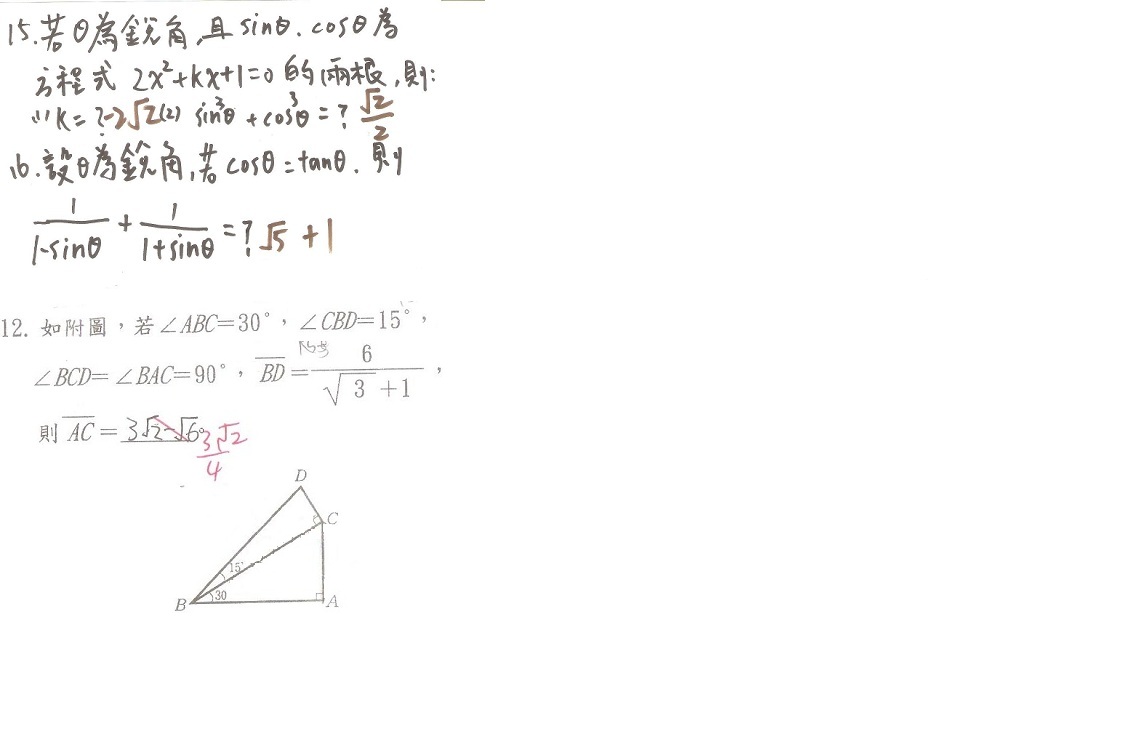 15.若θ為銳角,且 sinθ、cosθ為
方程式 2x²+kx+1=0 的兩根,則:
(1) k=? -2√2 (2) sin³θ + cos³θ = ? √2/2
16.設θ為銳角,若 cosθ=tanθ、則
1/(1-sinθ) + 1/(1+sinθ) = ? √5 +1
12. 如附圖,若∠ABC=30°,∠CBD=15°,
∠BCD=∠BAC=90°,BD=6/(√3+1),
則 AC= 3√2-√6。
3√2/4
D
C
15°
30
B
A